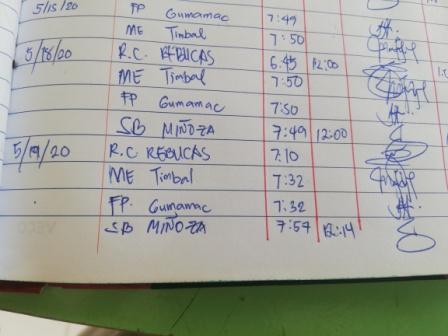 5/15/20 FP Gumamac 7:49
ME Timbal 7:50
5/18/20 R.C. REBUCAS 6:45 12:00
ME Timbal 7:50
FP Gumamac 7:50
SB MIÑOZA 7:49 12:00
5/19/20 R.C REBUCAS 7:10
ME Timbal 7:32
FP. Gumamac 7:32
SB MIÑOZA 7:57 12:14